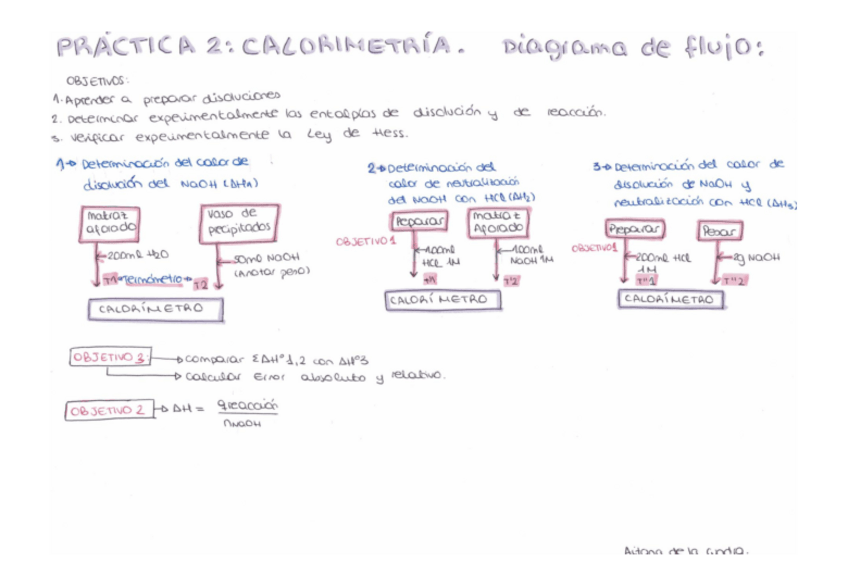 PRÁCTICA 2: CALORIMETRÍA. Diagrama de flujo:
OBJETIVOS:
1. Aprender a preparar disoluciones
2. Determinar experimentalmente las entalpías de disolución y de reacción.
3. Verificar experimentalmente la Ley de Hess.
1→ Determinación del calor de
disolución del NaOH (ΔH1)
matraz
aforado
vaso de
precipitados
200ml H2O
50ml NaOH
(Anotar peso)
T1 Termómetro T2
CALORÍMETRO
2→ Determinación del
calor de neutralización
del NaOH con HCl (ΔH2)
Preparar
Matraz
Aforado
OBJETIVO 1
100ml
HCl 1M
100ml
NaOH 1M
T'1
T'2
CALORÍMETRO
3→ Determinación del calor de
disolución de NaOH y
neutralización con HCl (ΔH3)
Preparar
Pesar
OBJETIVO 1
200ml HCl
1M
2g NaOH
T''1
T''2
CALORÍMETRO
OBJETIVO 3: → comparar ΣΔHº1,2 con ΔHº3
→ Calcular Error absoluto y relativo.
OBJETIVO 2 → ΔH = qreacción
nNaOH
Aitana de la